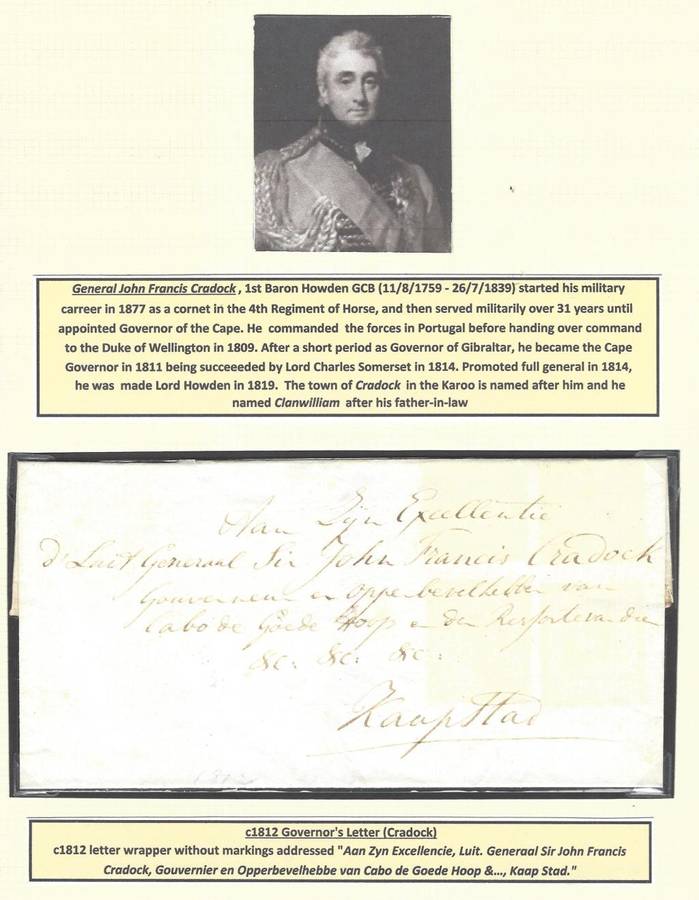 General John Francis Cradock , 1st Baron Howden GCB (11/8/1759 - 26/7/1839) started his military
carreer in 1877 as a cornet in the 4th Regiment of Horse, and then served militarily over 31 years until
appointed Governor of the Cape. He commanded the forces in Portugal before handing over command
to the Duke of Wellington in 1809. After a short period as Governor of Gibraltar, he became the Cape
Governor in 1811 being succeeeded by Lord Charles Somerset in 1814. Promoted full general in 1814,
he was made Lord Howden in 1819. The town of Cradock in the Karoo is named after him and he
named Clanwilliam after his father-in-law
Aan Zyn Excellentie
Generaal Sir John Francis Cradock
Gouverneur en opperbevelhebber van
Cabo de Goede Hoop en
&c: &c: &c:
Kaap Stad
c1812 Governor's Letter (Cradock)
c1812 letter wrapper without markings addressed "Aan Zyn Excellencie, Luit. Generaal Sir John Francis
Cradock, Gouvernier en Opperbevelhebbe van Cabo de Goede Hoop &..., Kaap Stad."